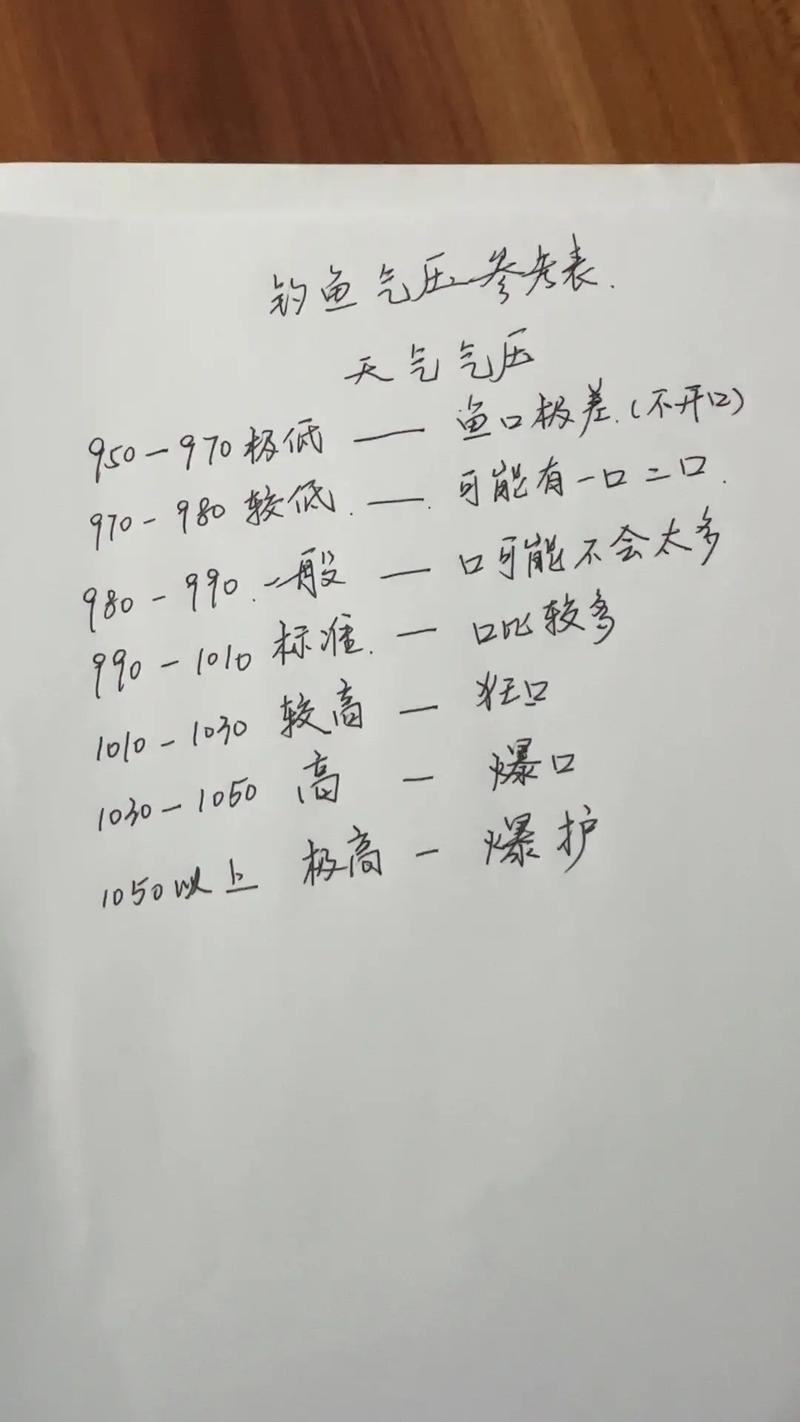 钓鱼气压参考表.
天气气压
950-970极低 —— 鱼口极差.(不开口)
970-980较低. ——. 可能有一口二口.
980-990.一般 — 口可能不会太多
990-1010 标准. — 口比较多
1010-1030 较高 — 狂口
1030-1050 高 — 爆口
1050以上 极高 - 爆护